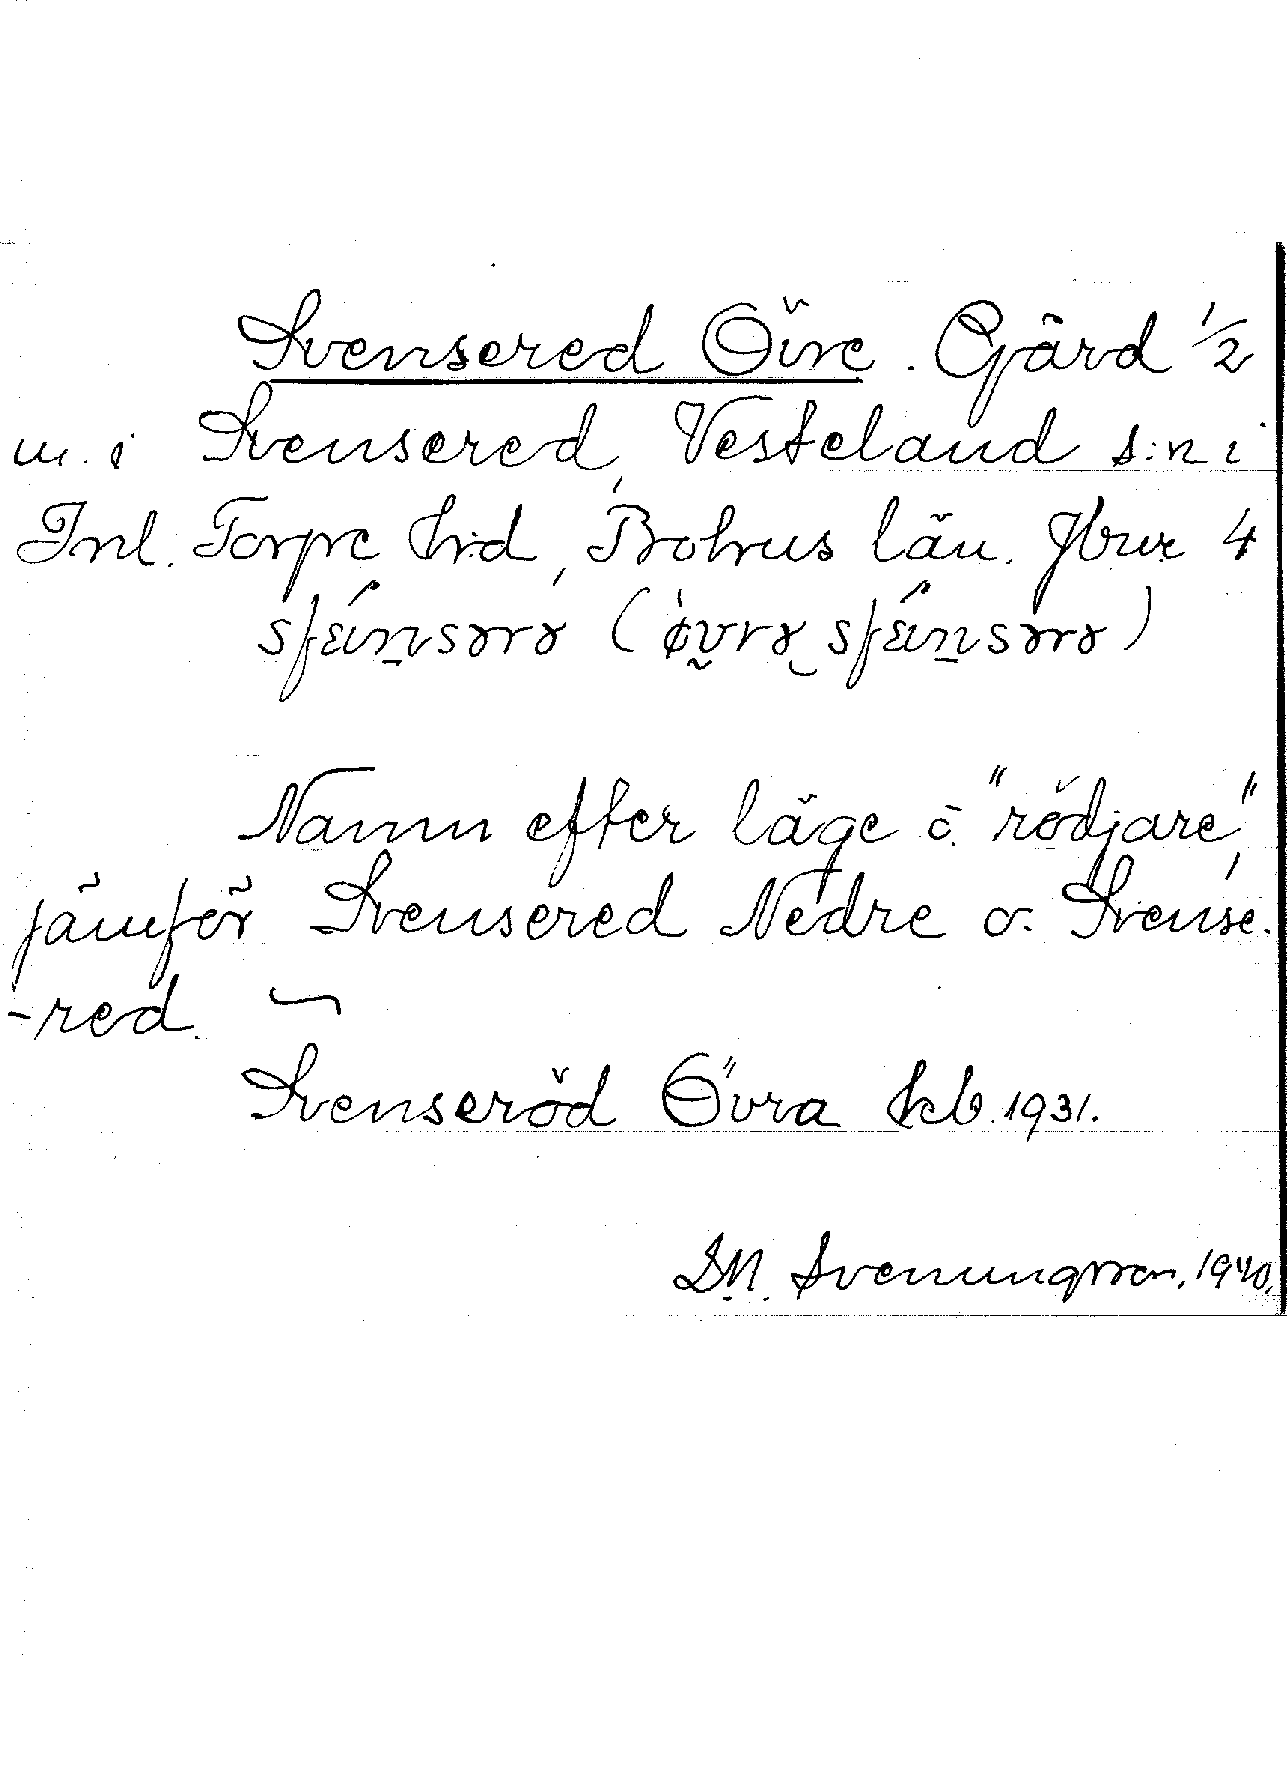 Svensered Övre. Gård 1/2
m. i Svensered, Vesteland s:n i
Inl. Torpe h:d, Bohus län. Jbnr 4
Namn efter läge o. "rödjare",
jämför Svensered Nedre o. Svense-
-red.
Svenseröd Övra kb. 1931.
D.N. Svenungsson. 1940.